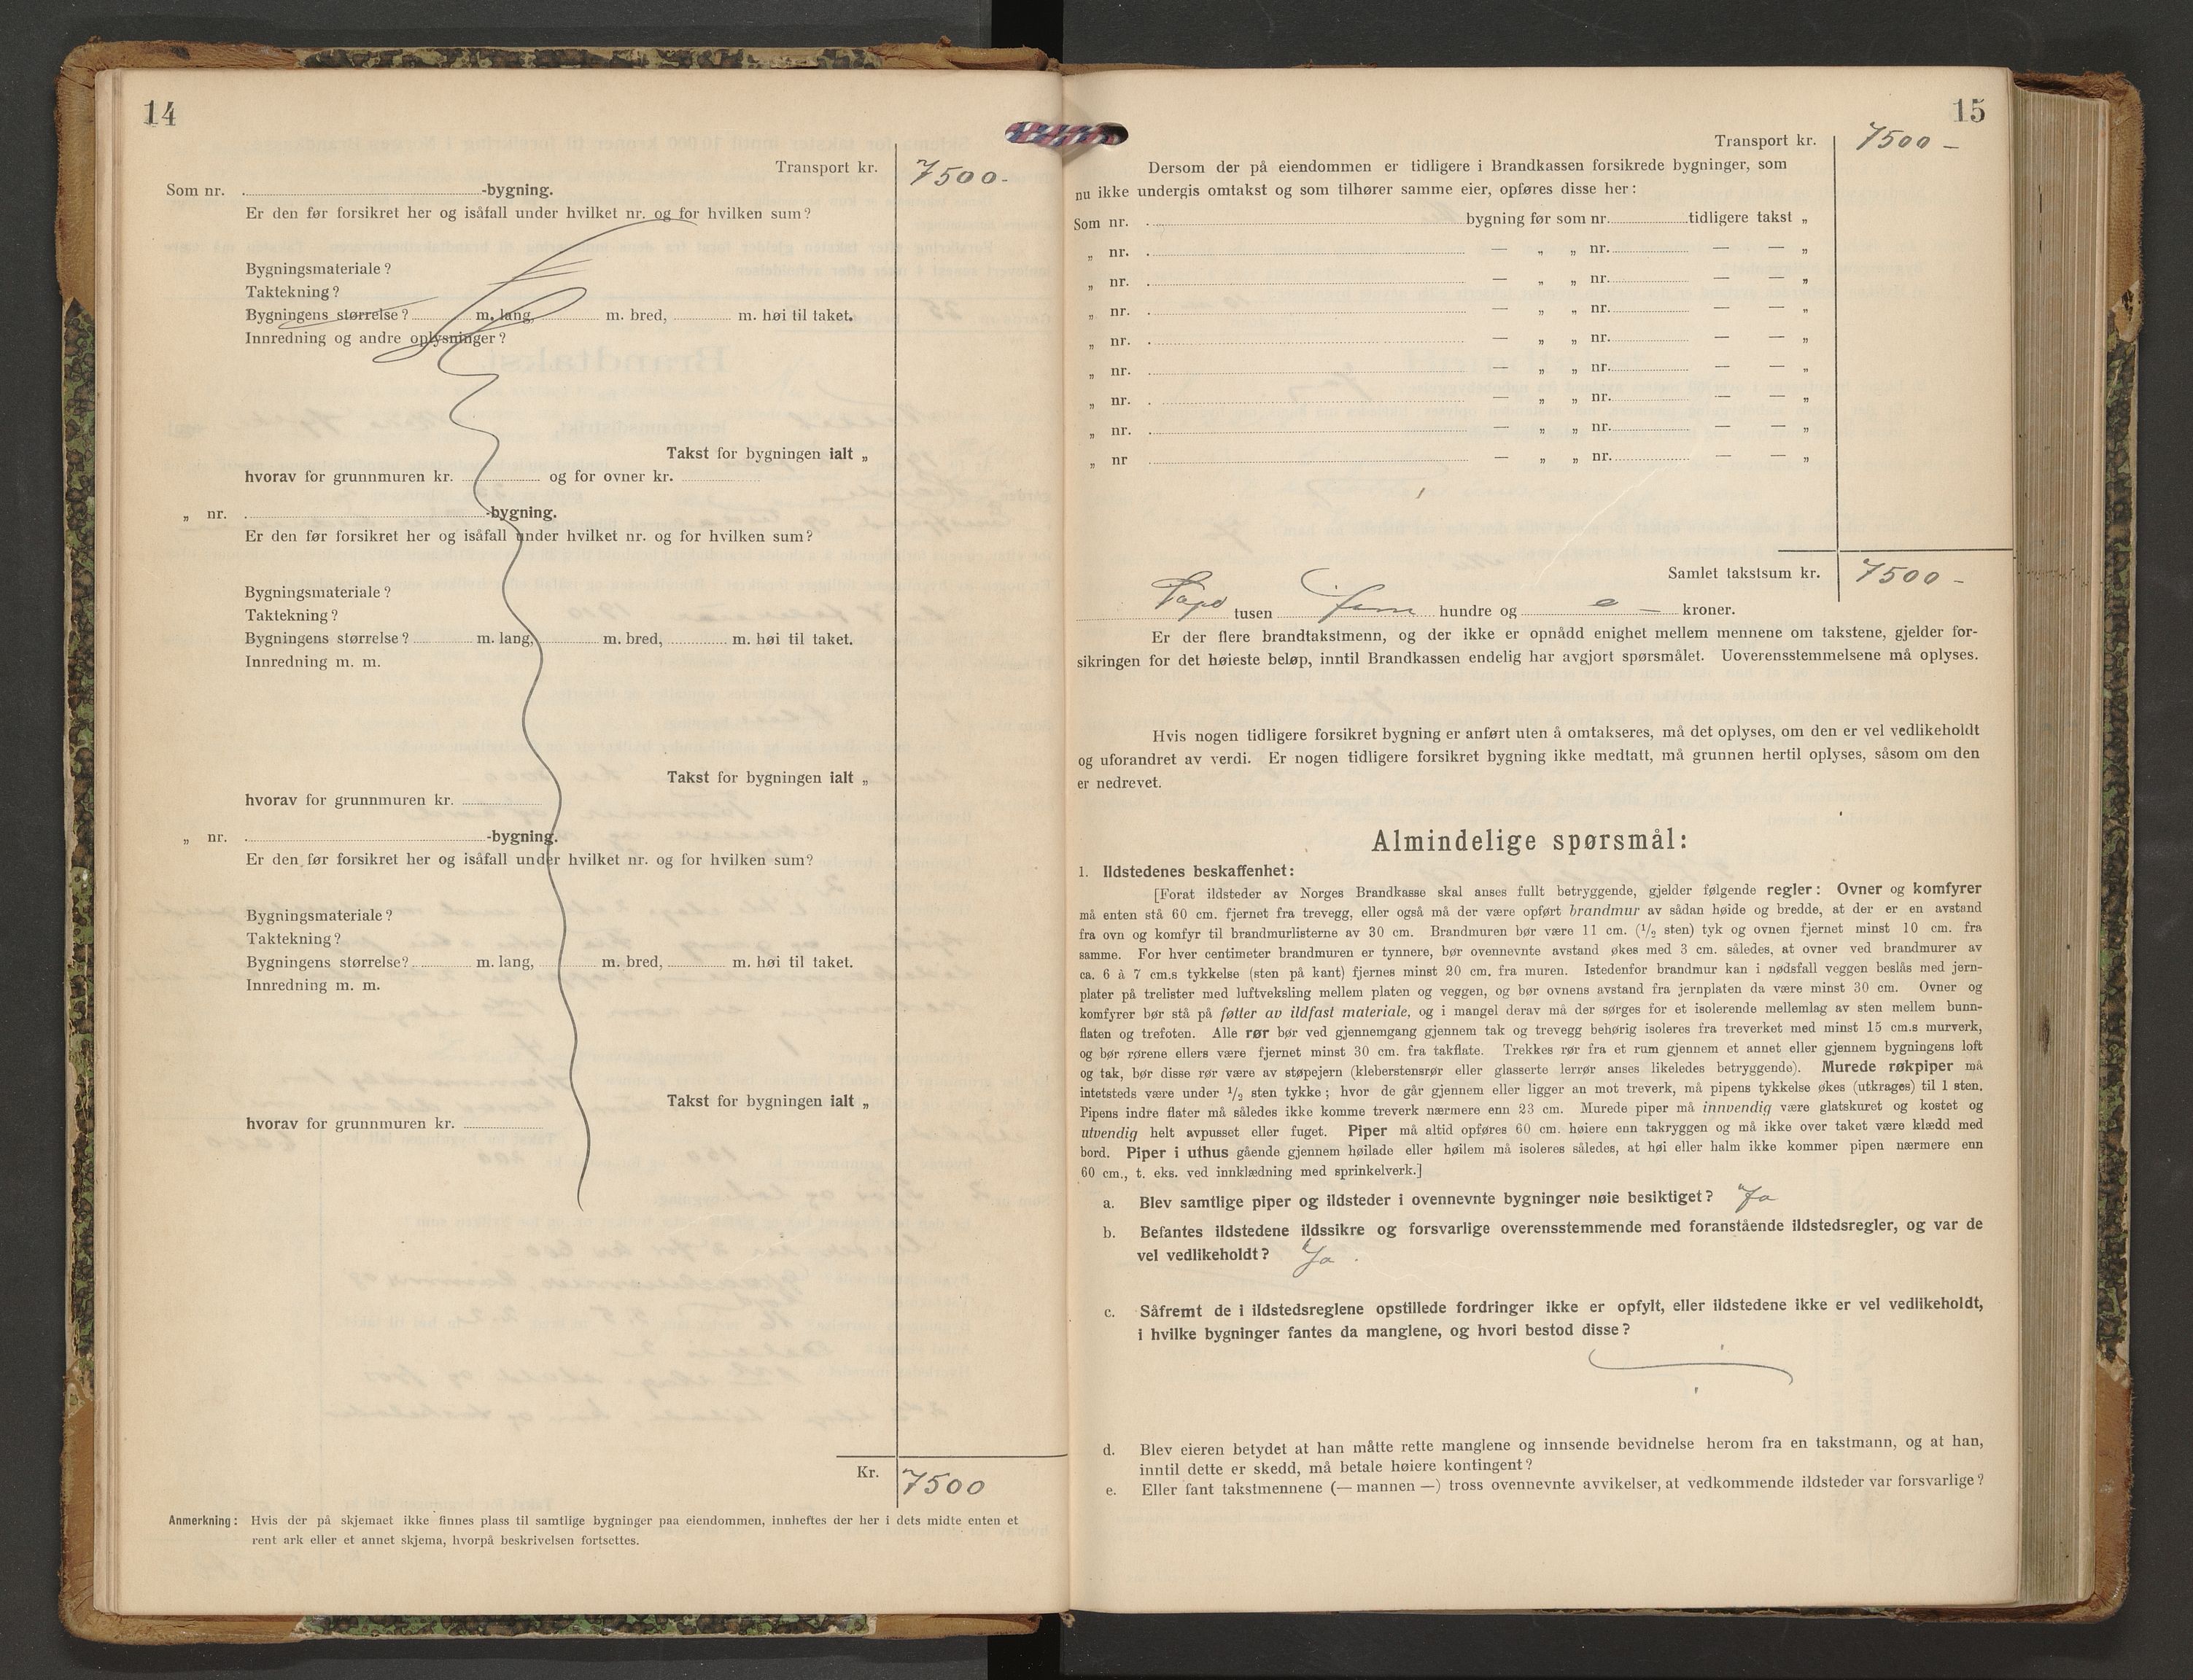 14
Transport kr. 7500-
Som nr. -bygning.
Er den før forsikret her og isåfall under hvilket nr. og for hvilken sum?
Bygningsmateriale?
Taktekning?
Bygningens størrelse? m. lang, m. bred, m. høi til taket.
Innredning og andre oplysninger?
Takst for bygningen ialt „
hvorav for grunnmuren kr. og for ovner kr.
„ nr. -bygning.
Er den før forsikret her og isåfall under hvilket nr. og for hvilken sum?
Bygningsmateriale?
Taktekning?
Bygningens størrelse? m. lang, m. bred, m. høi til taket.
Innredning m. m.
Takst for bygningen ialt „
hvorav for grunnmuren kr.
„ nr. -bygning.
Er den før forsikret her og isåfall under hvilket nr. og for hvilken sum?
Bygningsmateriale?
Taktekning?
Bygningens størrelse? m. lang, m. bred, m. høi til taket.
Innredning m. m.
Takst for bygningen ialt „
hvorav for grunnmuren kr.
Kr. 7500
Anmerkning: Hvis der på skjemaet ikke finnes plass til samtlige bygninger paa eiendommen, innheftes der her i dets midte enten et
rent ark eller et annet skjema, hvorpå beskrivelsen fortsettes.
15
Transport kr. 7500 -
Dersom der på eiendommen er tidligere i Brandkassen forsikrede bygninger, som
nu ikke undergis omtakst og som tilhører samme eier, opføres disse her:
Som nr. bygning før som nr. tidligere takst „
„ nr. — „ „ nr. — — „
„ nr. — „ „ nr. — — „
„ nr. — „ „ nr. — — „
„ nr. — „ „ nr. — — „
„ nr. — „ „ nr. — — „
„ nr. — „ „ nr. — — „
„ nr. — „ „ nr. — — „
„ nr — „ „ nr. — — „
Samlet takstsum kr. 7500 -
tusen fem hundre og — kroner.
Er der flere brandtakstmenn, og der ikke er opnådd enighet mellem mennene om takstene, gjelder for-
sikringen for det høieste beløp, inntil Brandkassen endelig har avgjort spørsmålet. Uoverensstemmelsene må oplyses.
Hvis nogen tidligere forsikret bygning er anført uten å omtakseres, må det oplyses, om den er vel vedlikeholdt
og uforandret av verdi. Er nogen tidligere forsikret bygning ikke medtatt, må grunnen hertil oplyses, såsom om den
er nedrevet.
Almindelige spørsmål:
1. Ildstedenes beskaffenhet:
[Forat ildsteder av Norges Brandkasse skal anses fullt betryggende, gjelder følgende regler: Ovner og komfyrer
må enten stå 60 cm. fjernet fra trevegg, eller også må der være opført brandmur av sådan høide og bredde, at der er en avstand
fra ovn og komfyr til brandmurlisterne av 30 cm. Brandmuren bør være 11 cm. (1/2 sten) tyk og ovnen fjernet minst 10 cm. fra
samme. For hver centimeter brandmuren er tynnere, bør ovennevnte avstand økes med 3 cm. således, at ovner ved brandmurer av
ca. 6 à 7 cm.s tykkelse (sten på kant) fjernes minst 20 cm. fra muren. Istedenfor brandmur kan i nødsfall veggen beslås med jern-
plater på trelister med luftveksling mellem platen og veggen, og bør ovnens avstand fra jernplaten da være minst 30 cm. Ovner og
komfyrer bør stå på føtter av ildfast materiale, og i mangel derav må der sørges for et isolerende mellemlag av sten mellem bunn-
flaten og trefoten. Alle rør bør ved gjennemgang gjennem tak og trevegg behørig isoleres fra treverket med minst 15 cm.s murverk,
og bør rørene ellers være fjernet minst 30 cm. fra takflate. Trekkes rør fra et rum gjennem et annet eller gjennem bygningens loft
og tak, bør disse rør være av støpejern (kleberstensrør eller glasserte lerrør anses likeledes betryggende). Murede røkpiper må
intetsteds være under 1/2 sten tykke; hvor de går gjennem eller ligger an mot treverk, må pipens tykkelse økes (utkrages) til 1 sten.
Pipens indre flater må således ikke komme treverk nærmere enn 23 cm. Murede piper må innvendig være glatskuret og kostet og
utvendig helt avpusset eller fuget. Piper må altid opføres 60 cm. høiere enn takryggen og må ikke over taket være klædd med
bord. Piper i uthus gående gjennem høilade eller høilem må isoleres således, at høi eller halm ikke kommer pipen nærmere enn
60 cm., t. eks. ved innklædning med sprinkelverk.]
a. Blev samtlige piper og ildsteder i ovennevnte bygninger nøie besiktiget? Ja
b. Befantes ildstedene ildssikre og forsvarlige overensstemmende med foranstående ildstedsregler, og var de
vel vedlikeholdt? Ja.
c. Såfremt de i ildstedsreglene opstillede fordringer ikke er opfylt, eller ildstedene ikke er vel vedlikeholdt,
i hvilke bygninger fantes da manglene, og hvori bestod disse?
d. Blev eieren betydet at han måtte rette manglene og innsende bevidnelse herom fra en takstmann, og at han,
inntil dette er skedd, må betale høiere kontingent?
e. Eller fant takstmennene (— mannen —) tross ovennevnte avvikelser, at vedkommende ildsteder var forsvarlige?